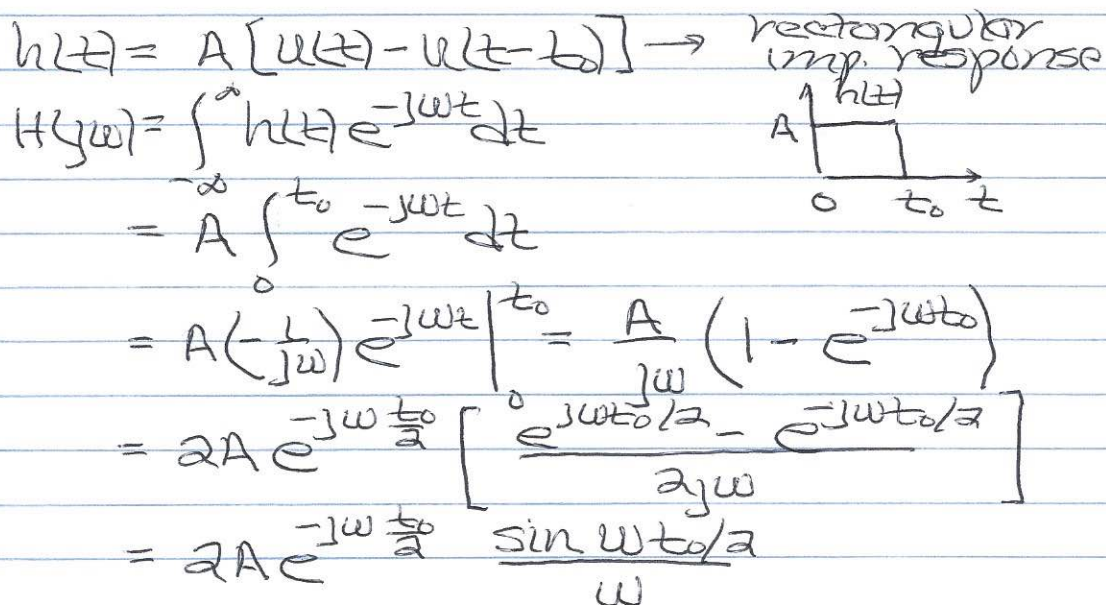 h(t) = A [u(t) - u(t-t₀)] → rectangular
imp. response
H(jω) = ∫_{-∞}^{∞} h(t) e^{-jωt} dt
h(t)
A
0 t₀ t
= A ∫_{0}^{t₀} e^{-jωt} dt
= A (-1/jω) e^{-jωt} |_{0}^{t₀} = A/jω (1 - e^{-jωt₀})
= 2A e^{-jω t₀/2} [ (e^{jωt₀/2} - e^{-jωt₀/2}) / 2jω ]
= 2A e^{-jω t₀/2} (sin ωt₀/2) / ω